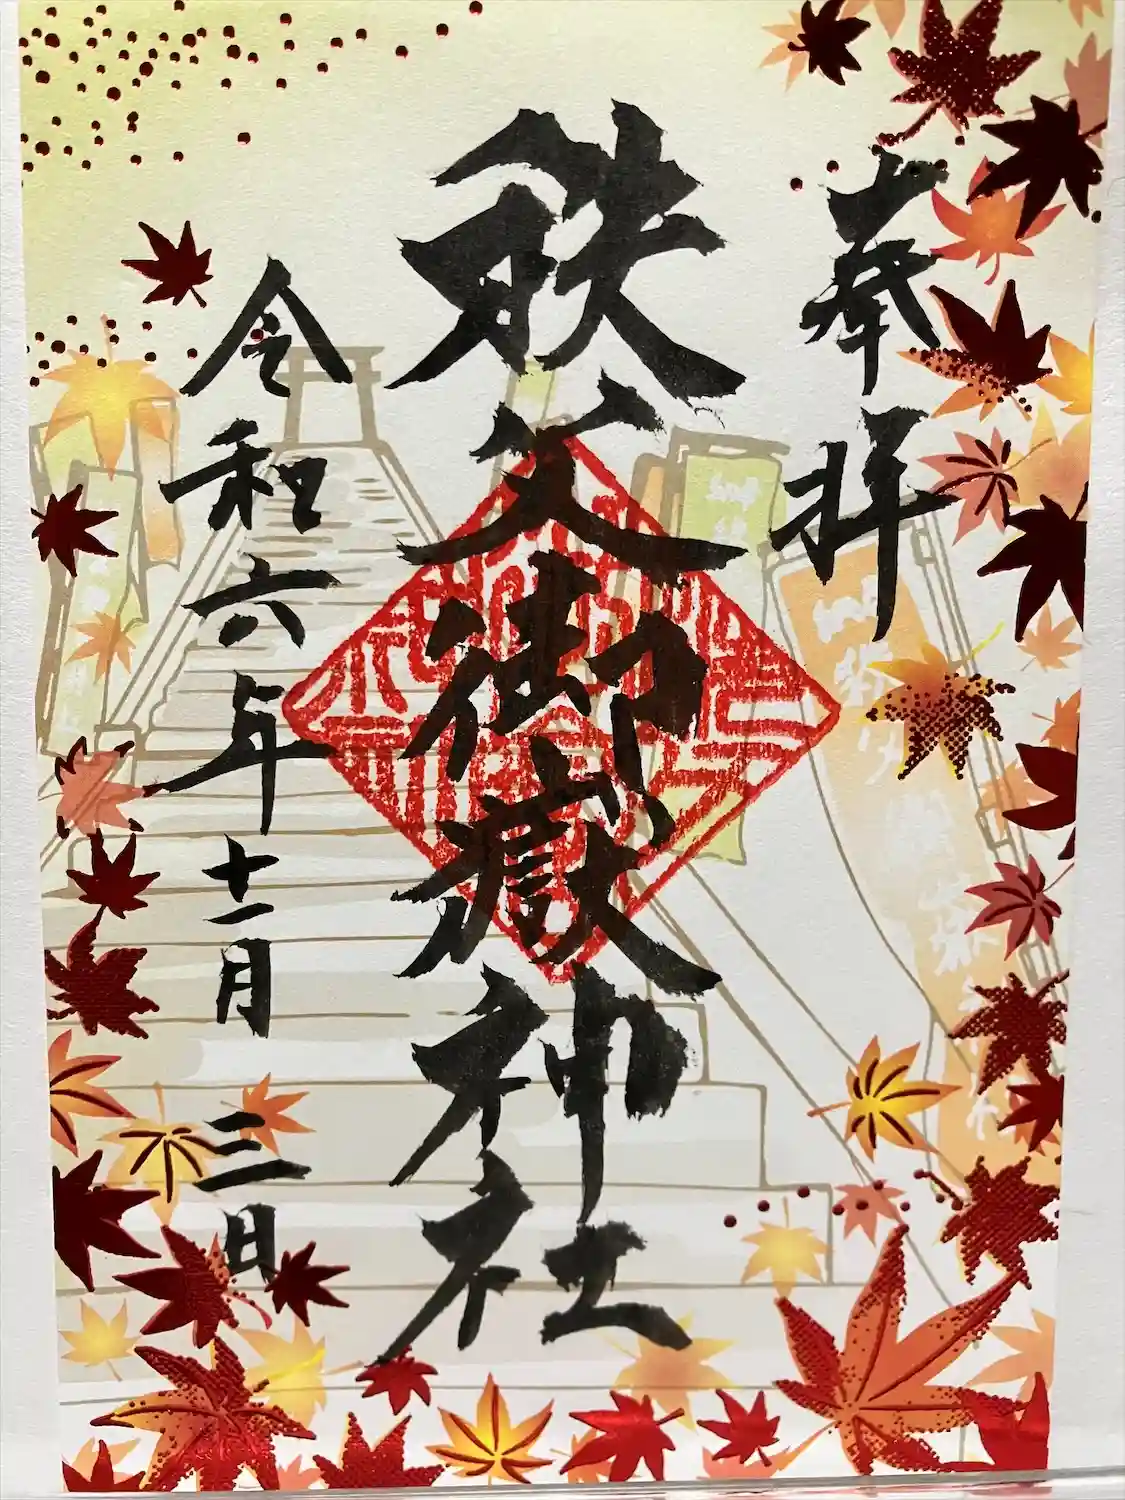 奉拝
秩父御嶽神社
令和六年十一月三日